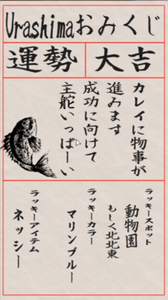 Urashimaおみくじ
運勢 大吉
カレイに物事が
進みます
成功に向けて
主舵いっぱーい
ラッキースポット
動物園
もしく北北東
ラッキーカラー
マリンブルー
ラッキーアイテム
ネッシー